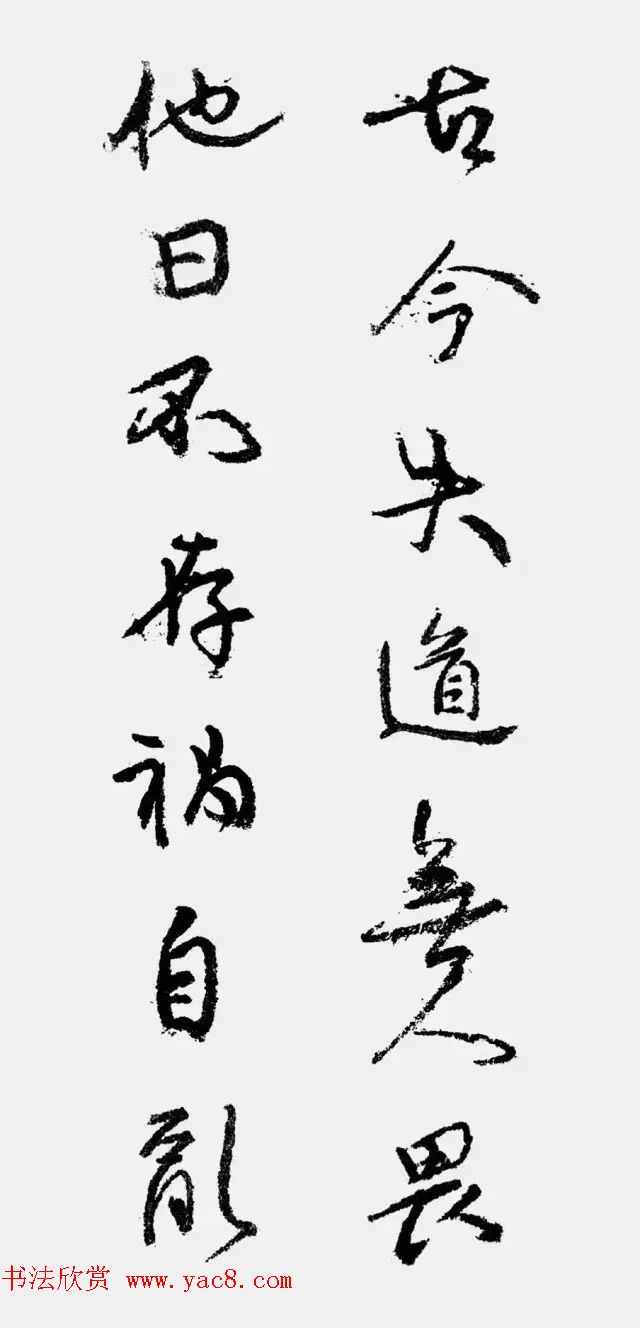 古今失道無人畏
他日存禍自
書法欣赏 www.yac8.com